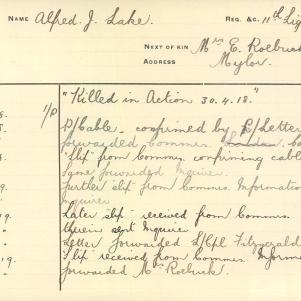 NAME Alfred. J. Lake. REG. &c. 11th Lig
NEXT OF KIN Mrs E. Roebuck
ADDRESS Mylor.
"Killed in Action 30.4.18."
1/P R/Cable - confirmed by R/Letter
forwarded Commrs. London.
Slip from Commrs. confirming cable
Same forwarded Inquirer
Further slip from Commrs. Information
Inquirer
19. Later slip received from Commrs.
therein sent Inquirer
Letter forwarded L/Cpl Fitzgerald
19. Slip received from Commrs. Inform
forwarded Mrs Roebuck.